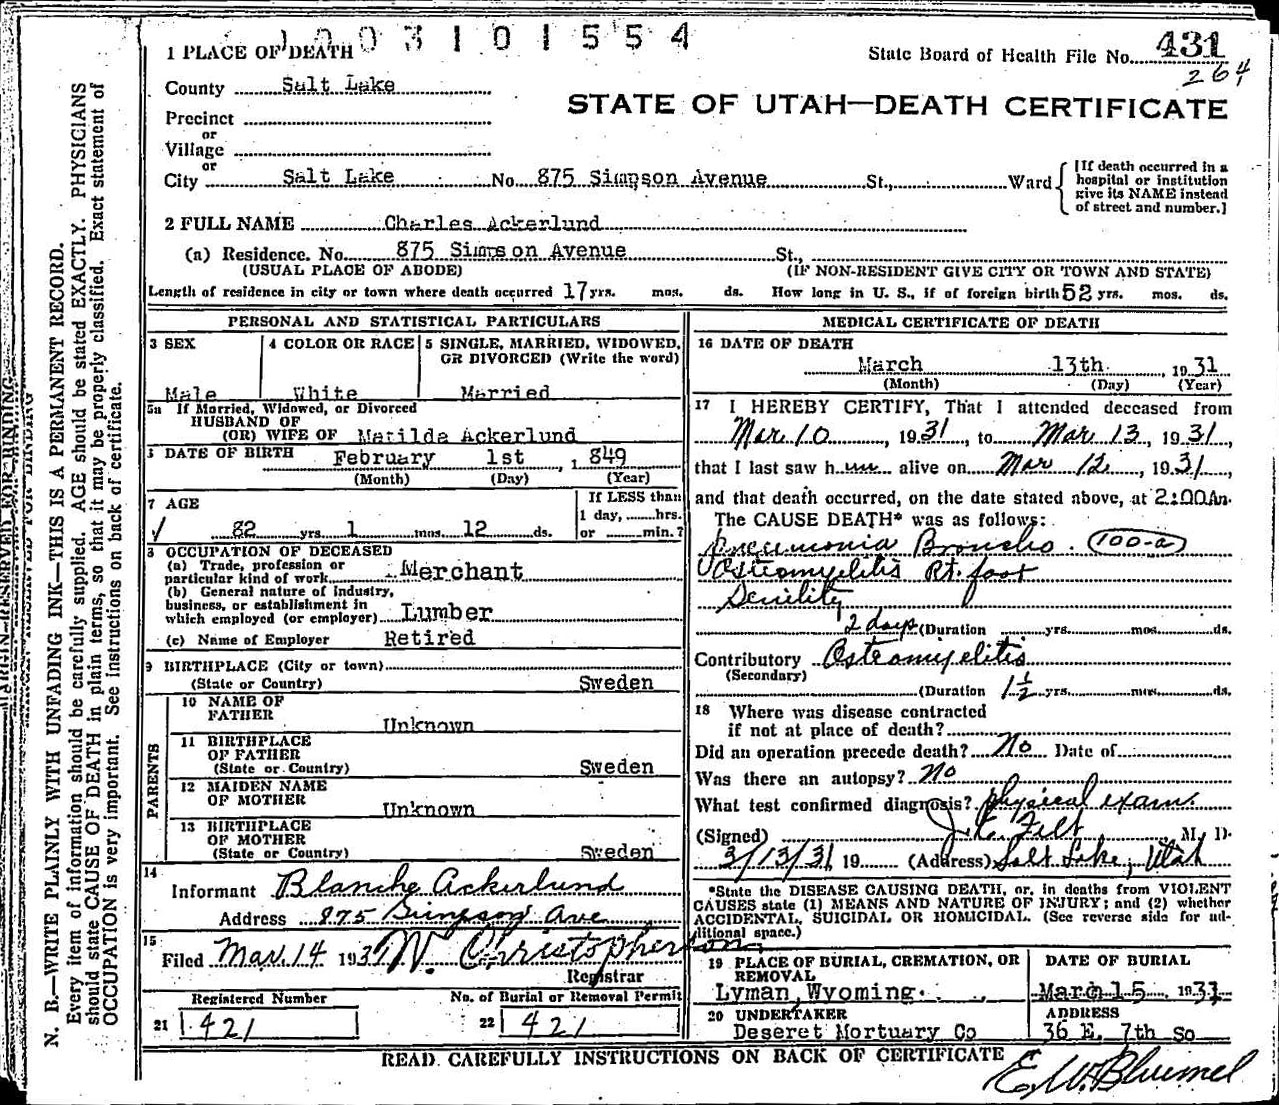 1003101554
1 PLACE OF DEATH
State Board of Health File No. 431
264
County Salt Lake
STATE OF UTAH—DEATH CERTIFICATE
Precinct
or
Village
or
City Salt Lake No. 875 Simpson Avenue St., Ward
[If death occurred in a
hospital or institution
give its NAME instead
of street and number.]
2 FULL NAME Charles Ackerlund
(a) Residence. No. 875 Simpson Avenue St.,
(USUAL PLACE OF ABODE) (IF NON-RESIDENT GIVE CITY OR TOWN AND STATE)
Length of residence in city or town where death occurred 17 yrs. mos. ds. How long in U. S., if of foreign birth 52 yrs. mos. ds.
PERSONAL AND STATISTICAL PARTICULARS
3 SEX 4 COLOR OR RACE 5 SINGLE, MARRIED, WIDOWED,
OR DIVORCED (Write the word)
Male White Married
5a If Married, Widowed, or Divorced
HUSBAND OF
(OR) WIFE OF Matilda Ackerlund
DATE OF BIRTH February 1st, 1849
(Month) (Day) (Year)
7 AGE
If LESS than
1 day, hrs.
82 yrs. 1 mos. 12 ds. or min.?
8 OCCUPATION OF DECEASED
(a) Trade, profession or
particular kind of work Merchant
(b) General nature of industry,
business, or establishment in
which employed (or employer) Lumber
(c) Name of Employer Retired
9 BIRTHPLACE (City or town)
(State or Country) Sweden
PARENTS
10 NAME OF
FATHER Unknown
11 BIRTHPLACE
OF FATHER
(State or Country) Sweden
12 MAIDEN NAME
OF MOTHER Unknown
13 BIRTHPLACE
OF MOTHER
(State or Country) Sweden
14
Informant Blanche Ackerlund
Address 875 Simpson Ave
15
Filed Mar. 14 1931 W. Christopherson
Registrar
Registered Number No. of Burial or Removal Permit
21 421 22 421
MEDICAL CERTIFICATE OF DEATH
16 DATE OF DEATH
March 13th, 1931
(Month) (Day) (Year)
17 I HEREBY CERTIFY, That I attended deceased from
Mar 10, 1931, to Mar 13, 1931,
that I last saw him alive on Mar 12, 1931,
and that death occurred, on the date stated above, at 2:00Am.
The CAUSE DEATH* was as follows:
Pneumonia Broncho. 100-a
Osteomyelitis Rt. foot
Senility
2 days (Duration yrs. mos. ds.
Contributory Osteomyelitis
(Secondary)
(Duration 1½ yrs. mos. ds.
18 Where was disease contracted
if not at place of death?
Did an operation precede death? No Date of
Was there an autopsy? No
What test confirmed diagnosis? Physical exam
(Signed) M. D.
3/13/31 19 (Address) Salt Lake, Utah
*State the DISEASE CAUSING DEATH, or, in deaths from VIOLENT
CAUSES state (1) MEANS AND NATURE OF INJURY; and (2) whether
ACCIDENTAL, SUICIDAL OR HOMICIDAL. (See reverse side for ad-
ditional space.)
19 PLACE OF BURIAL, CREMATION, OR
REMOVAL
Lyman, Wyoming.
DATE OF BURIAL
March 15 1931
20 UNDERTAKER
Deseret Mortuary Co
ADDRESS
36 E. 7th So
READ CAREFULLY INSTRUCTIONS ON BACK OF CERTIFICATE
E. W. Bluemel
MARGIN RESERVED FOR BINDING
N. B.—WRITE PLAINLY WITH UNFADING INK—THIS IS A PERMANENT RECORD.
Every item of information should be carefully supplied. AGE should be stated EXACTLY. PHYSICIANS
should state CAUSE OF DEATH in plain terms, so that it may be properly classified. Exact statement of
OCCUPATION is very important. See instructions on back of certificate.